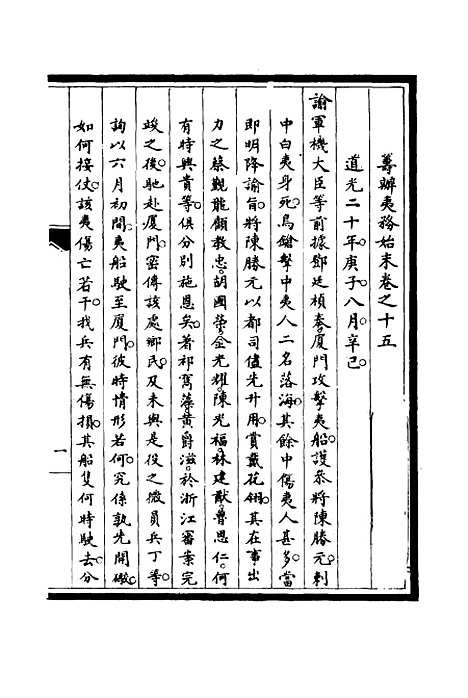 籌辦夷務始末卷之十五
道光二十年庚子八月辛巳
諭軍機大臣等前據鄧廷楨奏。廈門攻擊夷船。護叅將陳勝元。刺
中白夷身死。鳥鎗擊中夷人二名落海。其餘中傷夷人甚多。當
即明降諭旨。將陳勝元以都司儘先升用。賞戴花翎。其在事出
力之蔡覲龍顧教忠。胡國榮。金光耀。陳光福。林建猷。曾恩仁。何
有時與貴等。俱分別施恩矣。著祁寯藻。黃爵滋。於浙江審案完
竣之後。馳赴廈門。密傳該處鄉民。及未與是役之微員兵丁等。
詢以六月初間。夷船駛至廈門。彼時情形若何。究係孰先開礮。
如何接仗。該夷傷亡若干。我兵有無傷損。其船隻何時駛去。分
一